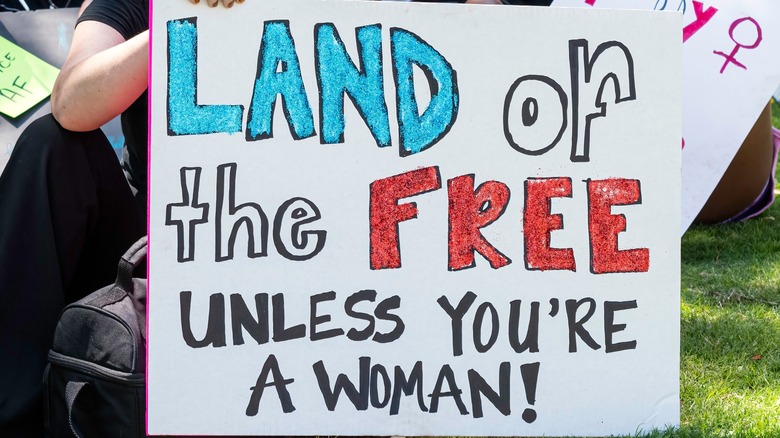 LAND of
the FREE
UNLESS YOU'RE
A WOMAN!
AF